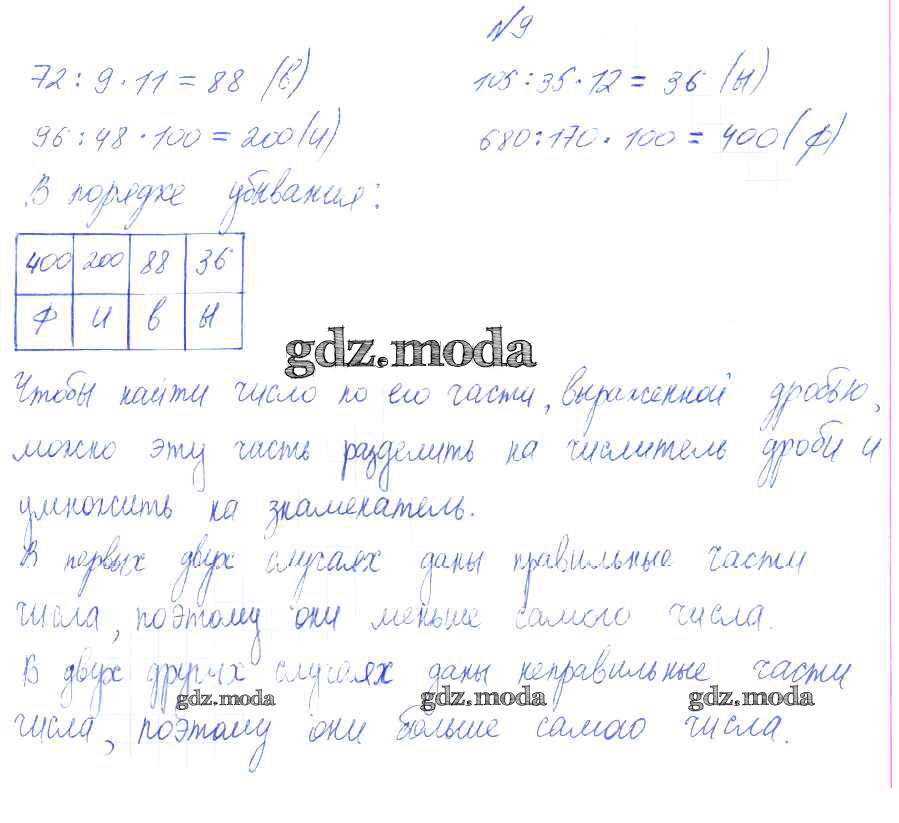 №9
72 : 9 · 11 = 88 (в)
105 : 35 · 12 = 36 (ы)
96 : 48 · 100 = 200 (и)
680 : 170 · 100 = 400 (ф)
В порядке убывания:
400 200 88 36
Ф И В Ы
gdz.moda
Чтобы найти число по его части, выраженной дробью,
можно эту часть разделить на числитель дроби и
умножить на знаменатель.
В первых двух случаях даны правильные части
числа, поэтому они меньше самого числа.
В двух других случаях даны неправильные части
gdz.moda gdz.moda gdz.moda
числа, поэтому они больше самого числа.